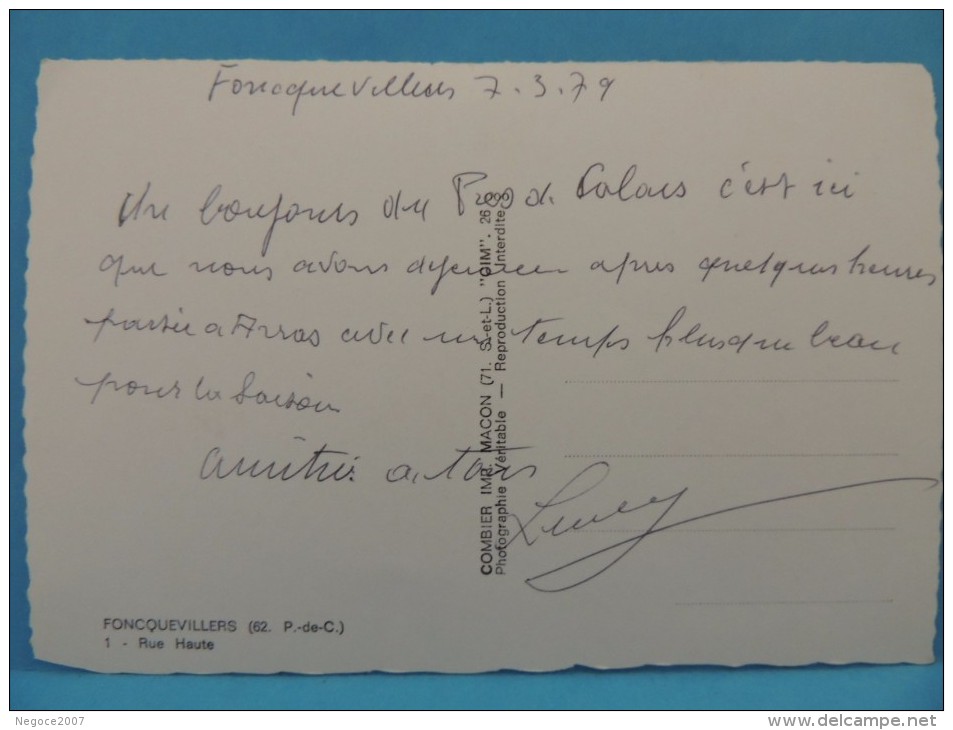 Foncquevillers 7.3.79
Un bonjours du Pas d. Calais c'est ici
que nous avons dejeuner apres quelques heures
passée a Arras avec un temps plusque beau
pour la saison
amitiés a tous
COMBIER IMP. MACON (71. S.-et-L.) "CIM". 26
Photographie Véritable — Reproduction Interdite
FONCQUEVILLERS (62. P.-de-C.)
1 - Rue Haute
Negoce2007
www.delcampe.net